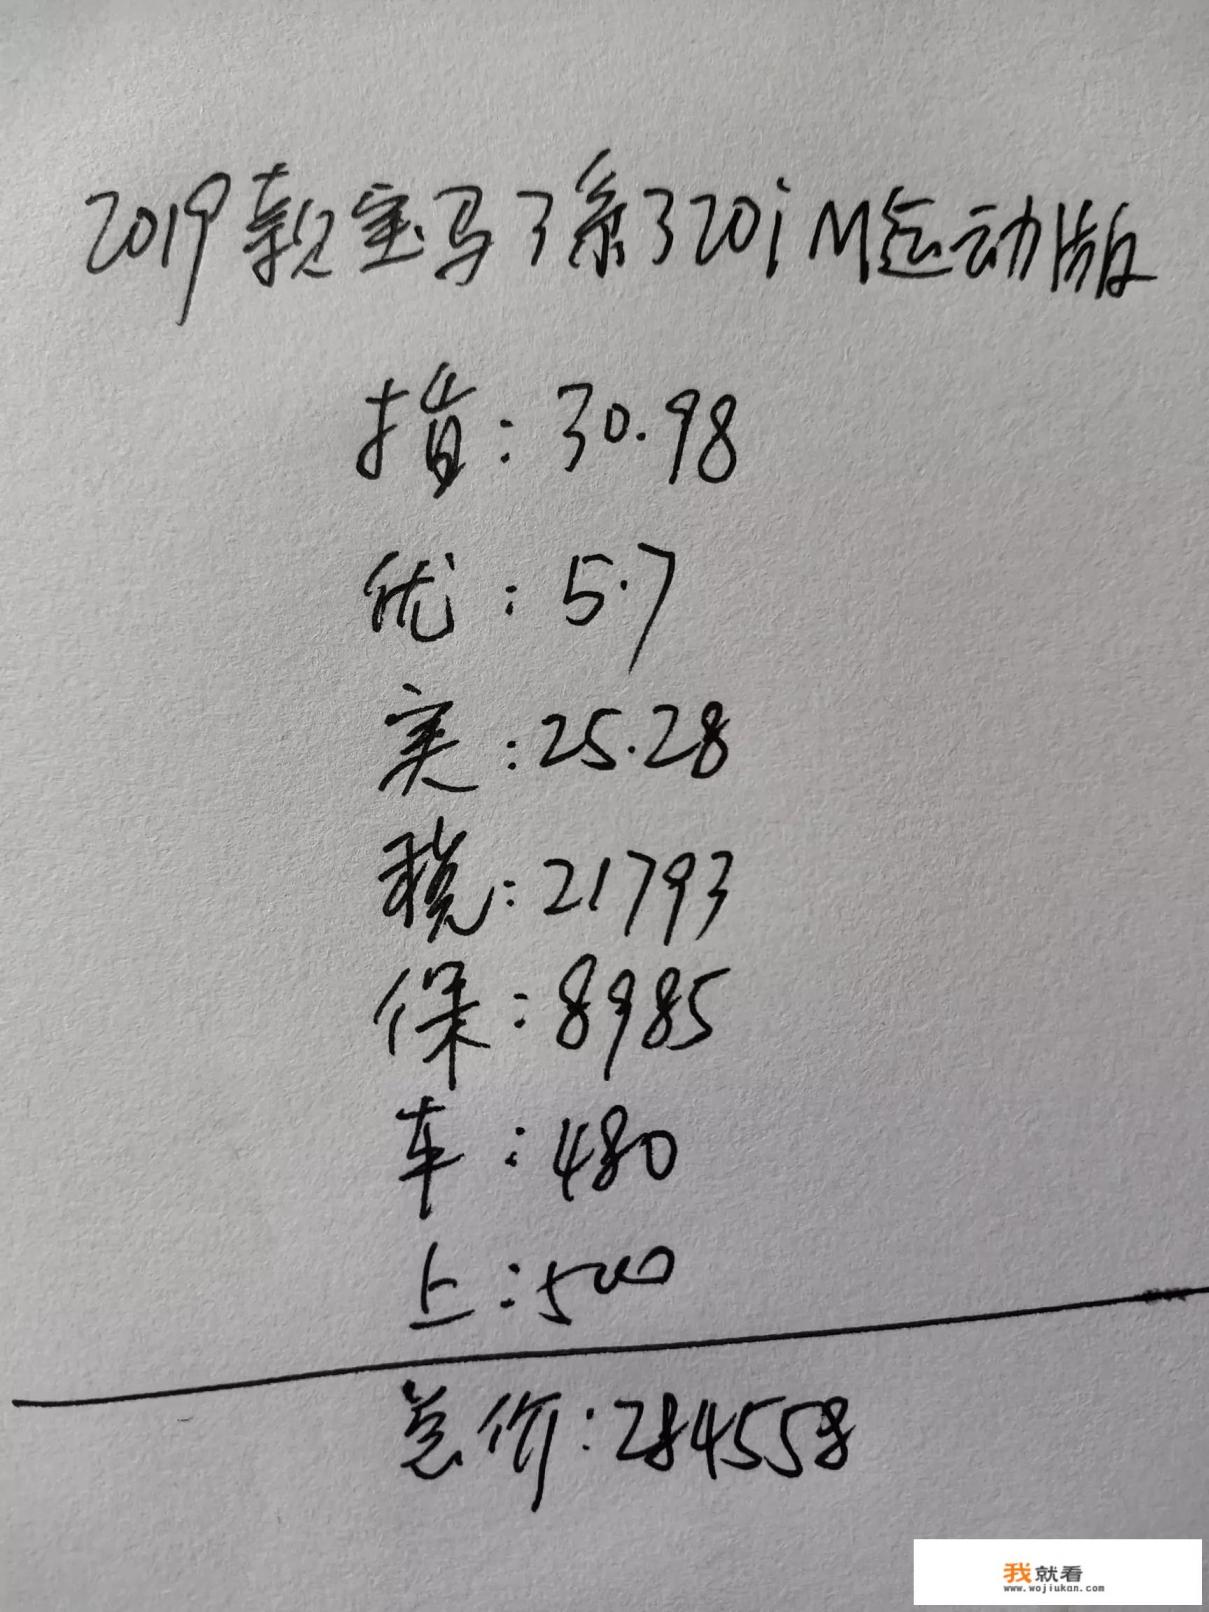 2019款宝马3系320i M运动版
指:30.98
优:5.7
实:25.28
税:21793
保:8985
车:480
上:500
总价:284558
我就看
www.wojiukan.com